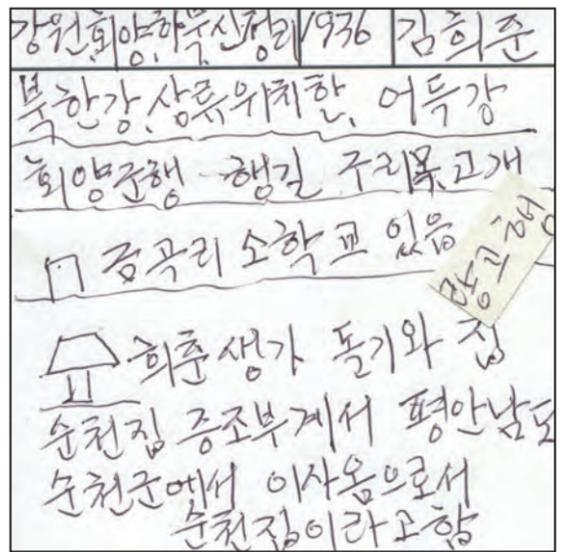 강원, 회양, 하북, 신정리 1936 김희준
북한강, 상류, 위치한, 어득강
회양군행 행길 구리목고개
금곡리 소학교 있음
희준생가 돌기와 집
순천집 증조부게서 평안남도
순천군에서 이사옴으로서
순천집이라고함